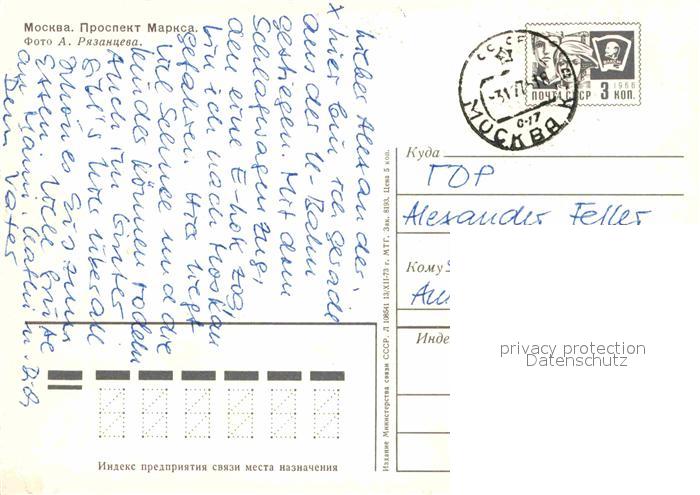 Москва. Проспект Маркса.
Фото А. Рязанцева.
Lieber Alexander
x hier bin ich gerade
aus der U-Bahn
gestiegen. Mit dem
Schlafwagenzug,
den eine E-Lok zog,
bin ich nach Moskau
gefahren. Hier liegt
viel Schnee und die
Kinder können rodeln
Auch im
gibt's hier überall
Eis zum
Essen. Viele Grüße
an Mami, Kathrin u. Dich,
Dein Vater
ПОЧТА СССР 3 КОП.
1966
МОСКВА
Куда
ГДР
Alexander Feller
Кому
Инде
privacy protection
Datenschutz
Издание Министерства связи СССР. Л 106541 13/XII-73 г. МТГ. Зак. 8193. Цена 5 коп.
Индекс предприятия связи места назначения